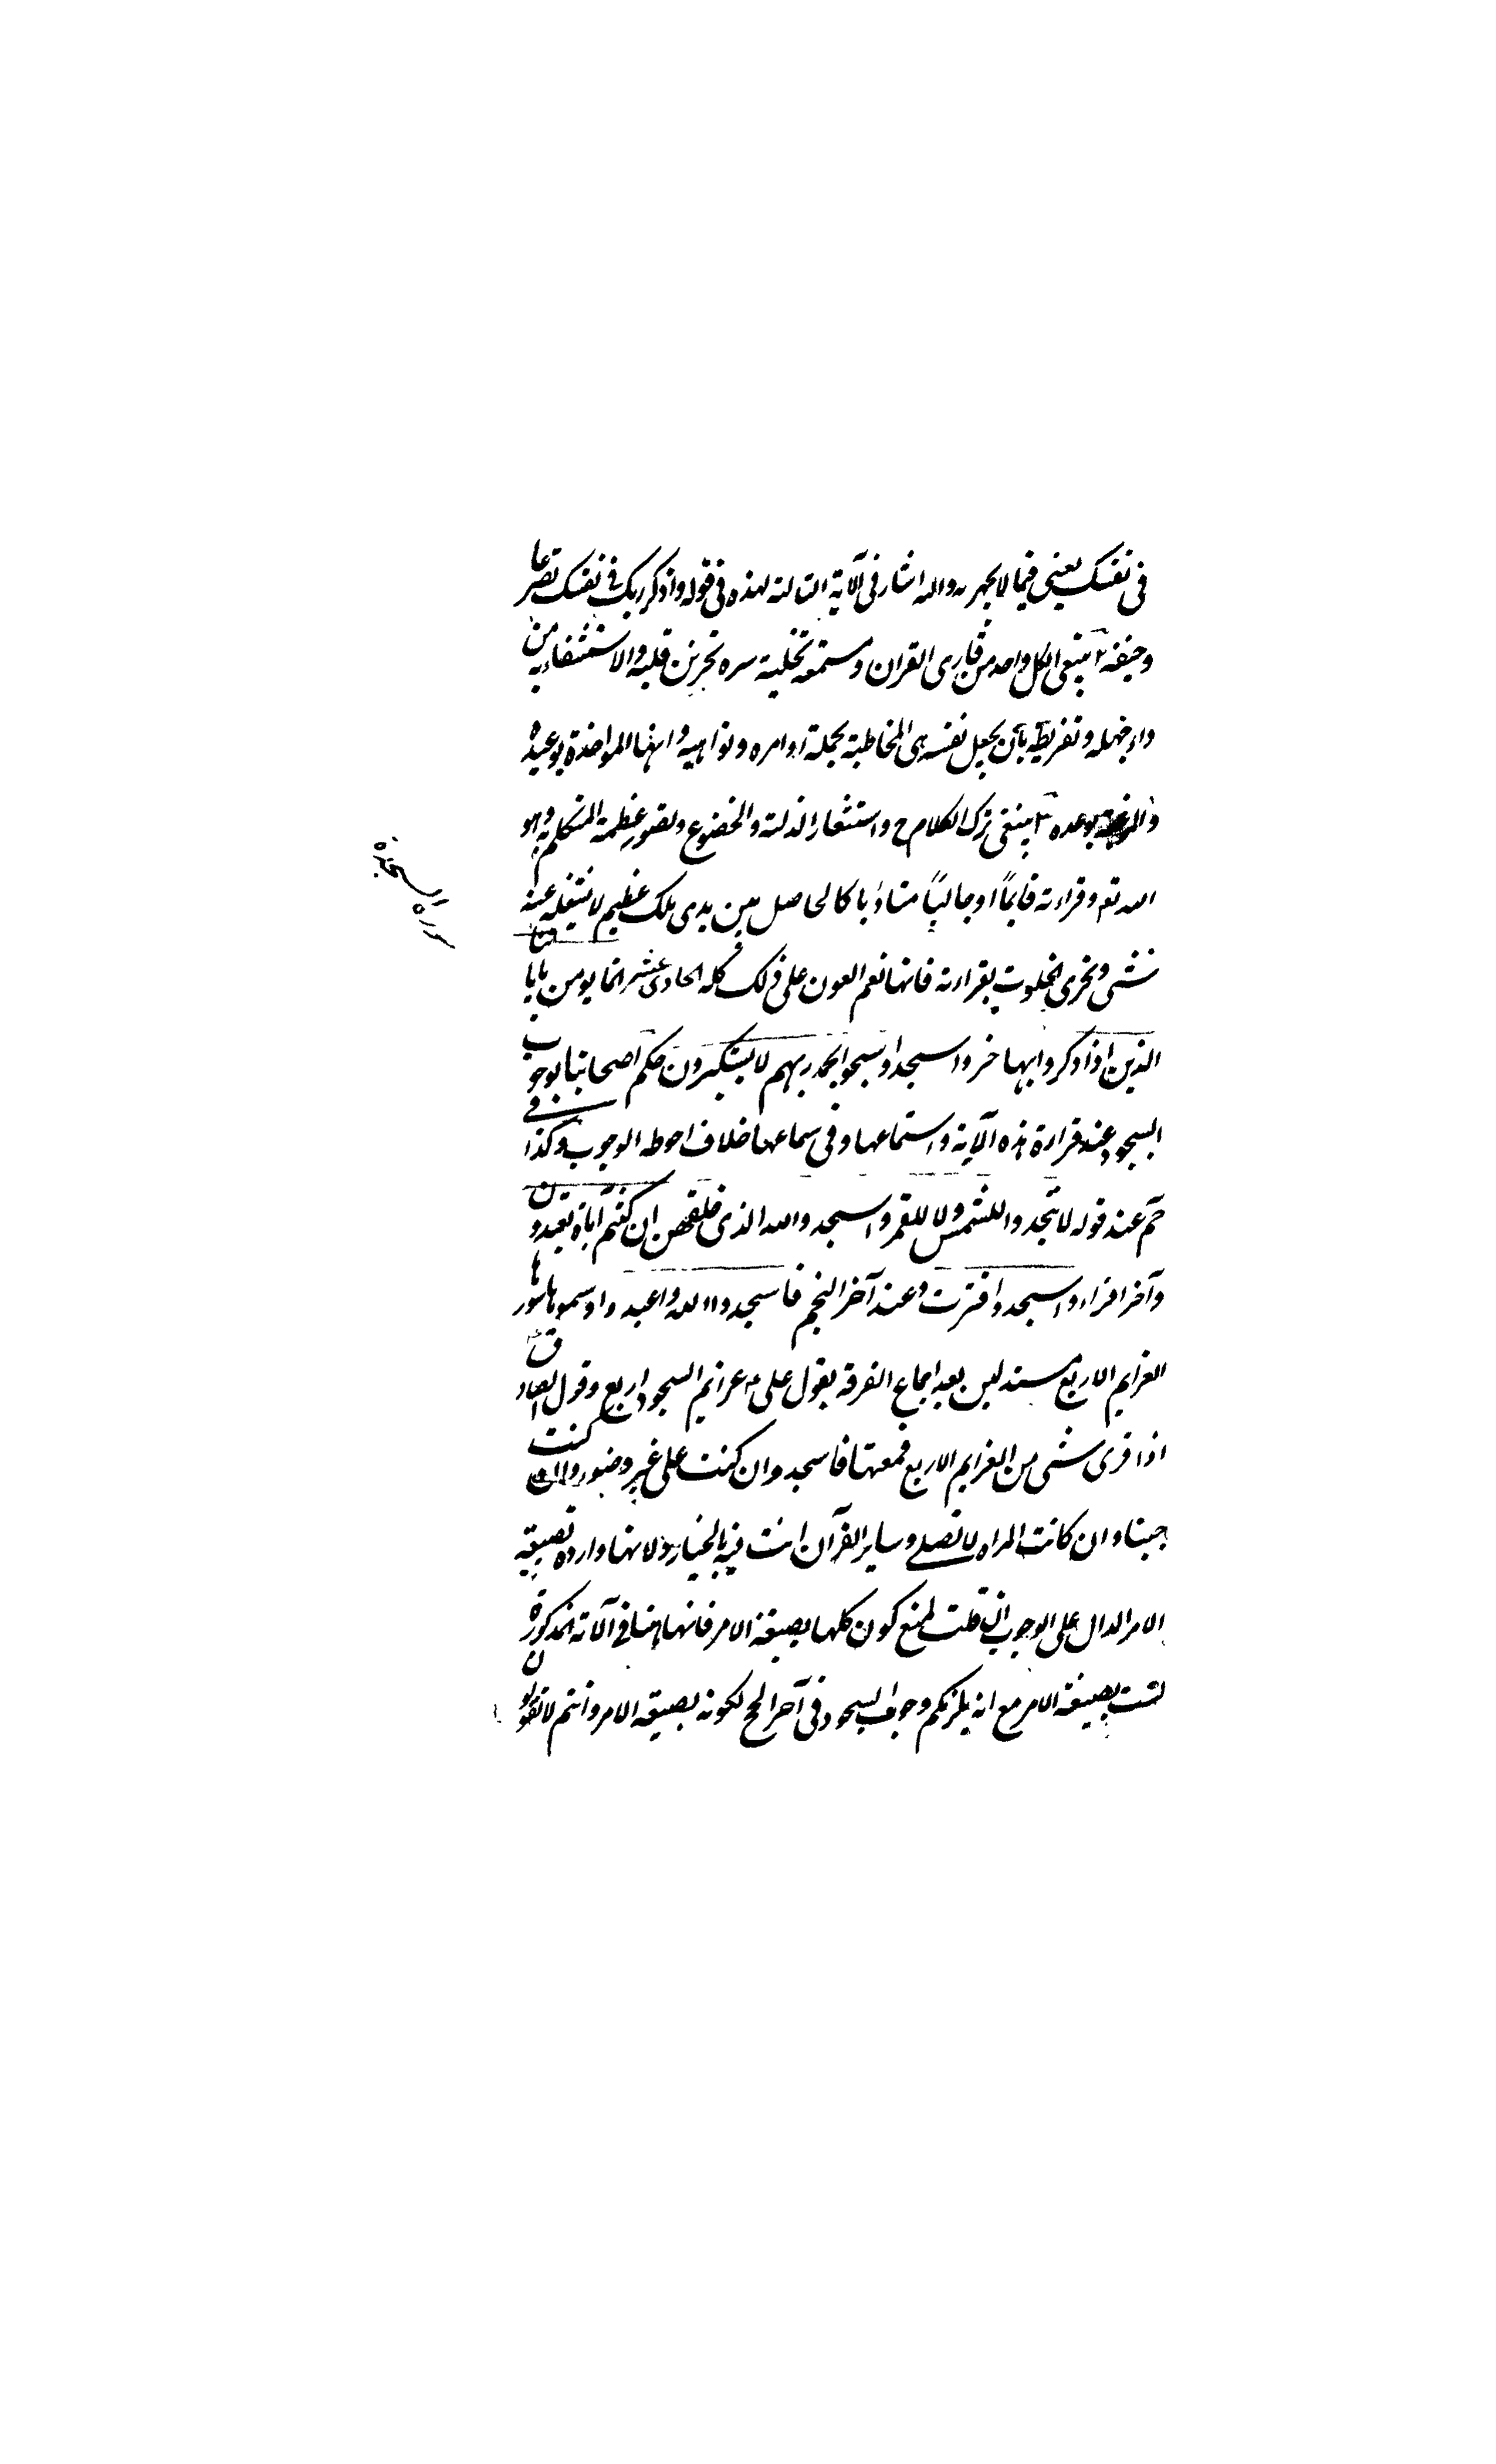 في نفسك يعني فيما لا يجهر به واليه اشار في الآية التالية لهذه في قوله واذكر ربك في نفسك تضرعا
وخيفة ٢ ينبغي لكل واحد من قارى القران ومستمعه تخلية سره تحزين قلبه والاستشفاء به من
داء جهله وتفريطه بأن يجعل نفسه هي المخاطبة بجملة اوامره ونواهيه وانها المواخذة بوعيده
والمرغبة بوعده ٣ ينبغي ترك الكلام ح واستشعار الذلة والخضوع وتصور عظمة المتكلم به وهو
الله تع وقراءته قايمًا او جالسًا متادبا كالحاصل بين يدى ملك عظيم لا يشغله عنه
شى وتحرى الخلوت بقراءته فانها نعم العون على ذلك كله الحادى عشر انما يومن باياتنا
الذين اذا ذكروا بها خروا سجدا وسبحوا بحمد ربهم لا يستكبرون حكم اصحابنا بوجوب
السجود عند قراءة هذه الآية واستماعها وفي سماعها خلاف احوطه الوجوب وكذا في
حم عند قوله لا تسجدوا للشمس ولا للقمر واسجدوا لله الذى خلقهن ان كنتم اياه تعبدون
وآخر اقراء واسجد واقترب وعند آخر النجم فاسجدوا لله واعبدوا وسموها سور
العزايم الاربع مستدلين بعد اجماع الفرقة بقول على ع عزائم السجود اربع وقول الصادق
اذا قرى شى من العزايم الاربع فسمعتها فاسجد وان كنت على غير وضوء وان كنت
جنبا وان كانت المراه لا تصلى وساير القرآن انت فيه بالخيار ولانها وارده بصيغة
الامر الدال على الوجوب ان قلت نمنع كون كلها بصيغة الامر فانها هنا في الآية المذكورة
ليست بصيغة الامر مع انه يلزمكم وجوب السجود في آخر الحج لكونه بصيغة الامر وانتم لا تقولون
سورة السجدة